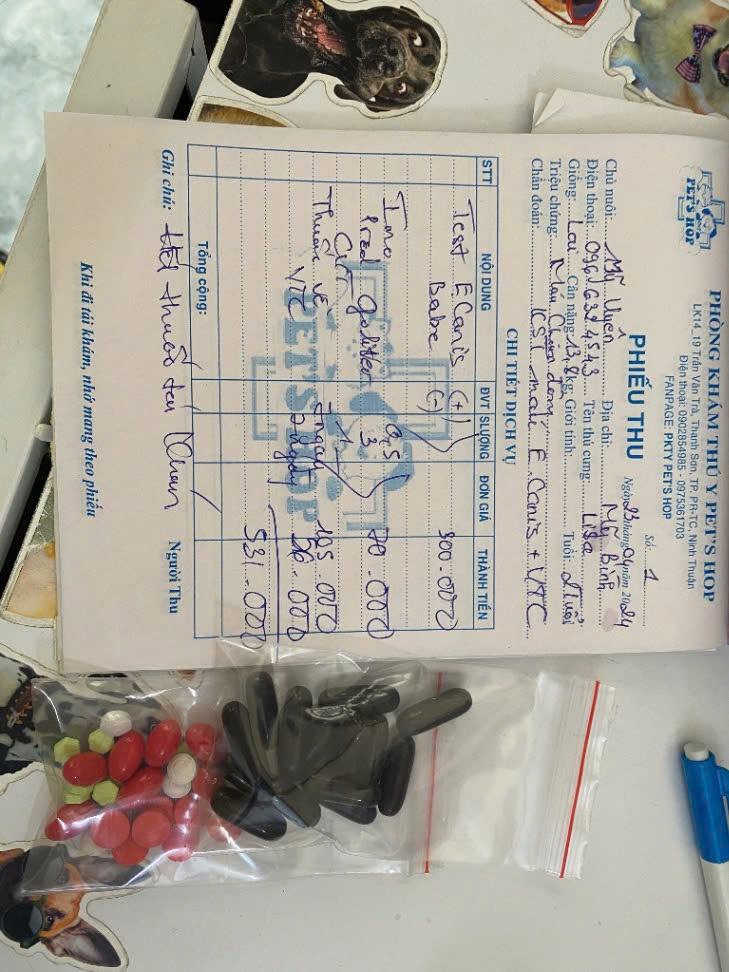 PET'S HOP
PHÒNG KHÁM THÚ Y PET'S HOP
LK14_19 Trần Văn Trà, Thanh Sơn, TP. PR-TC, Ninh Thuận
Điện thoại: 0902854985 - 0975361703
FANPAGE: PKTY PET'S HOP
PHIẾU THU
Số: 1
Ngày 23 tháng 04 năm 2024
Chủ nuôi: Mỹ Uyên Địa chỉ: Mỹ Bình
Điện thoại: Tên thú cưng: Lisa
Giống: Lai Cân nặng: 13,8 kg Giới tính: Tuổi: 2 tuổi
Triệu chứng: Máu
Chẩn đoán: KST máu E. Canis + VTC
CHI TIẾT DỊCH VỤ
STT NỘI DUNG ĐVT SLƯỢNG ĐƠN GIÁ THÀNH TIỀN
Test E. Canis (+)
Babe (-) 300.000
Imo 0,5
Pred 3 70.000
1
Thuốc về 7 ngày 105.000
VTC 7 ngày 56.000
531.000
PET'S HOP
Tổng cộng:
Ghi chú: Hết thuốc tái khám
Người Thu
Khi đi tái khám, nhớ mang theo phiếu